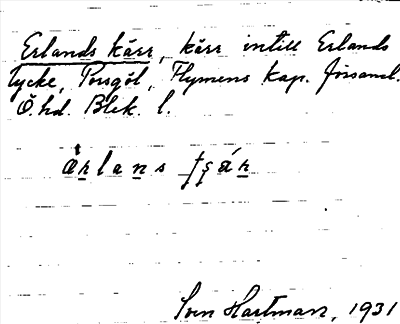 Erlands kärr, kärr intill Erlands
lycke, Torsgöl, Flymens kap. församl.
Ö. hd. Blek. l.
Sven Hartman, 1931